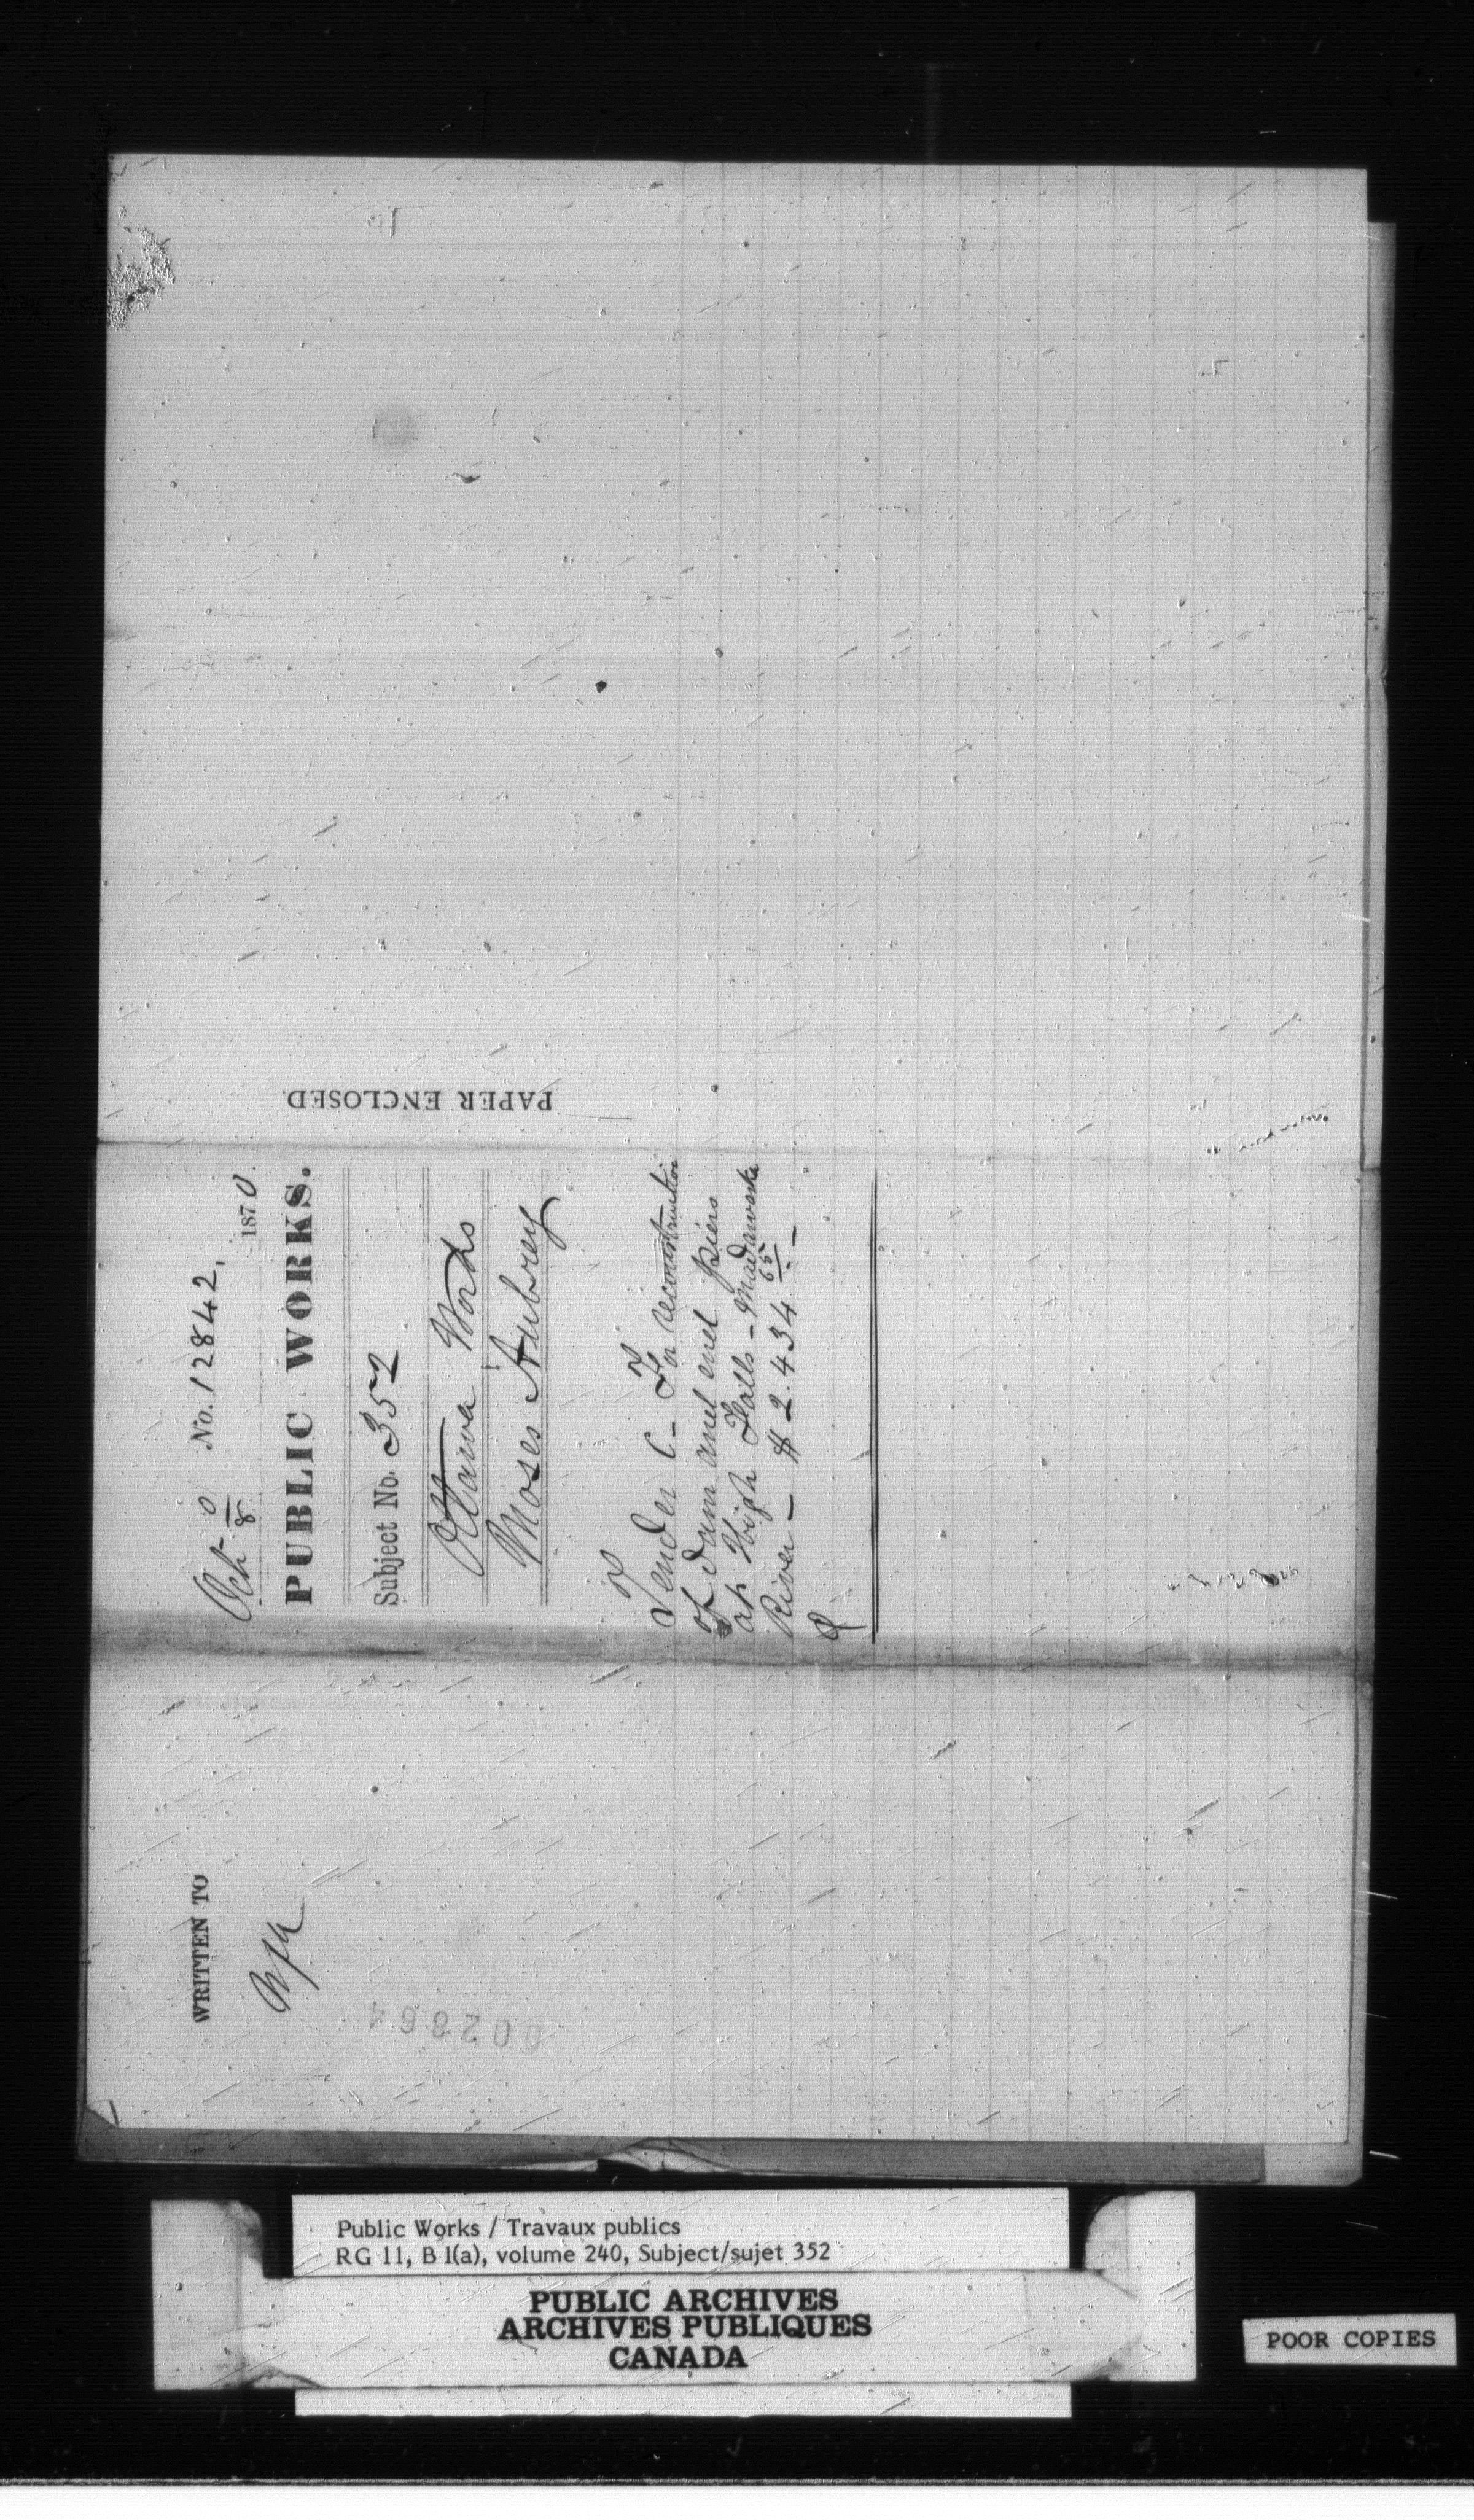 Oct 0/8 No. 12842, 1870
PUBLIC WORKS.
Subject No. 352
Ottawa Works
Moses Aubrey
Tender C - For reconstruction
of dam and end piers
at High Falls - Madawaska
River - $2.434 65
PAPER ENCLOSED.
WRITTEN TO
002864
Public Works / Travaux publics
RG 11, B 1(a), volume 240, Subject/sujet 352
PUBLIC ARCHIVES
ARCHIVES PUBLIQUES
CANADA
POOR COPIES